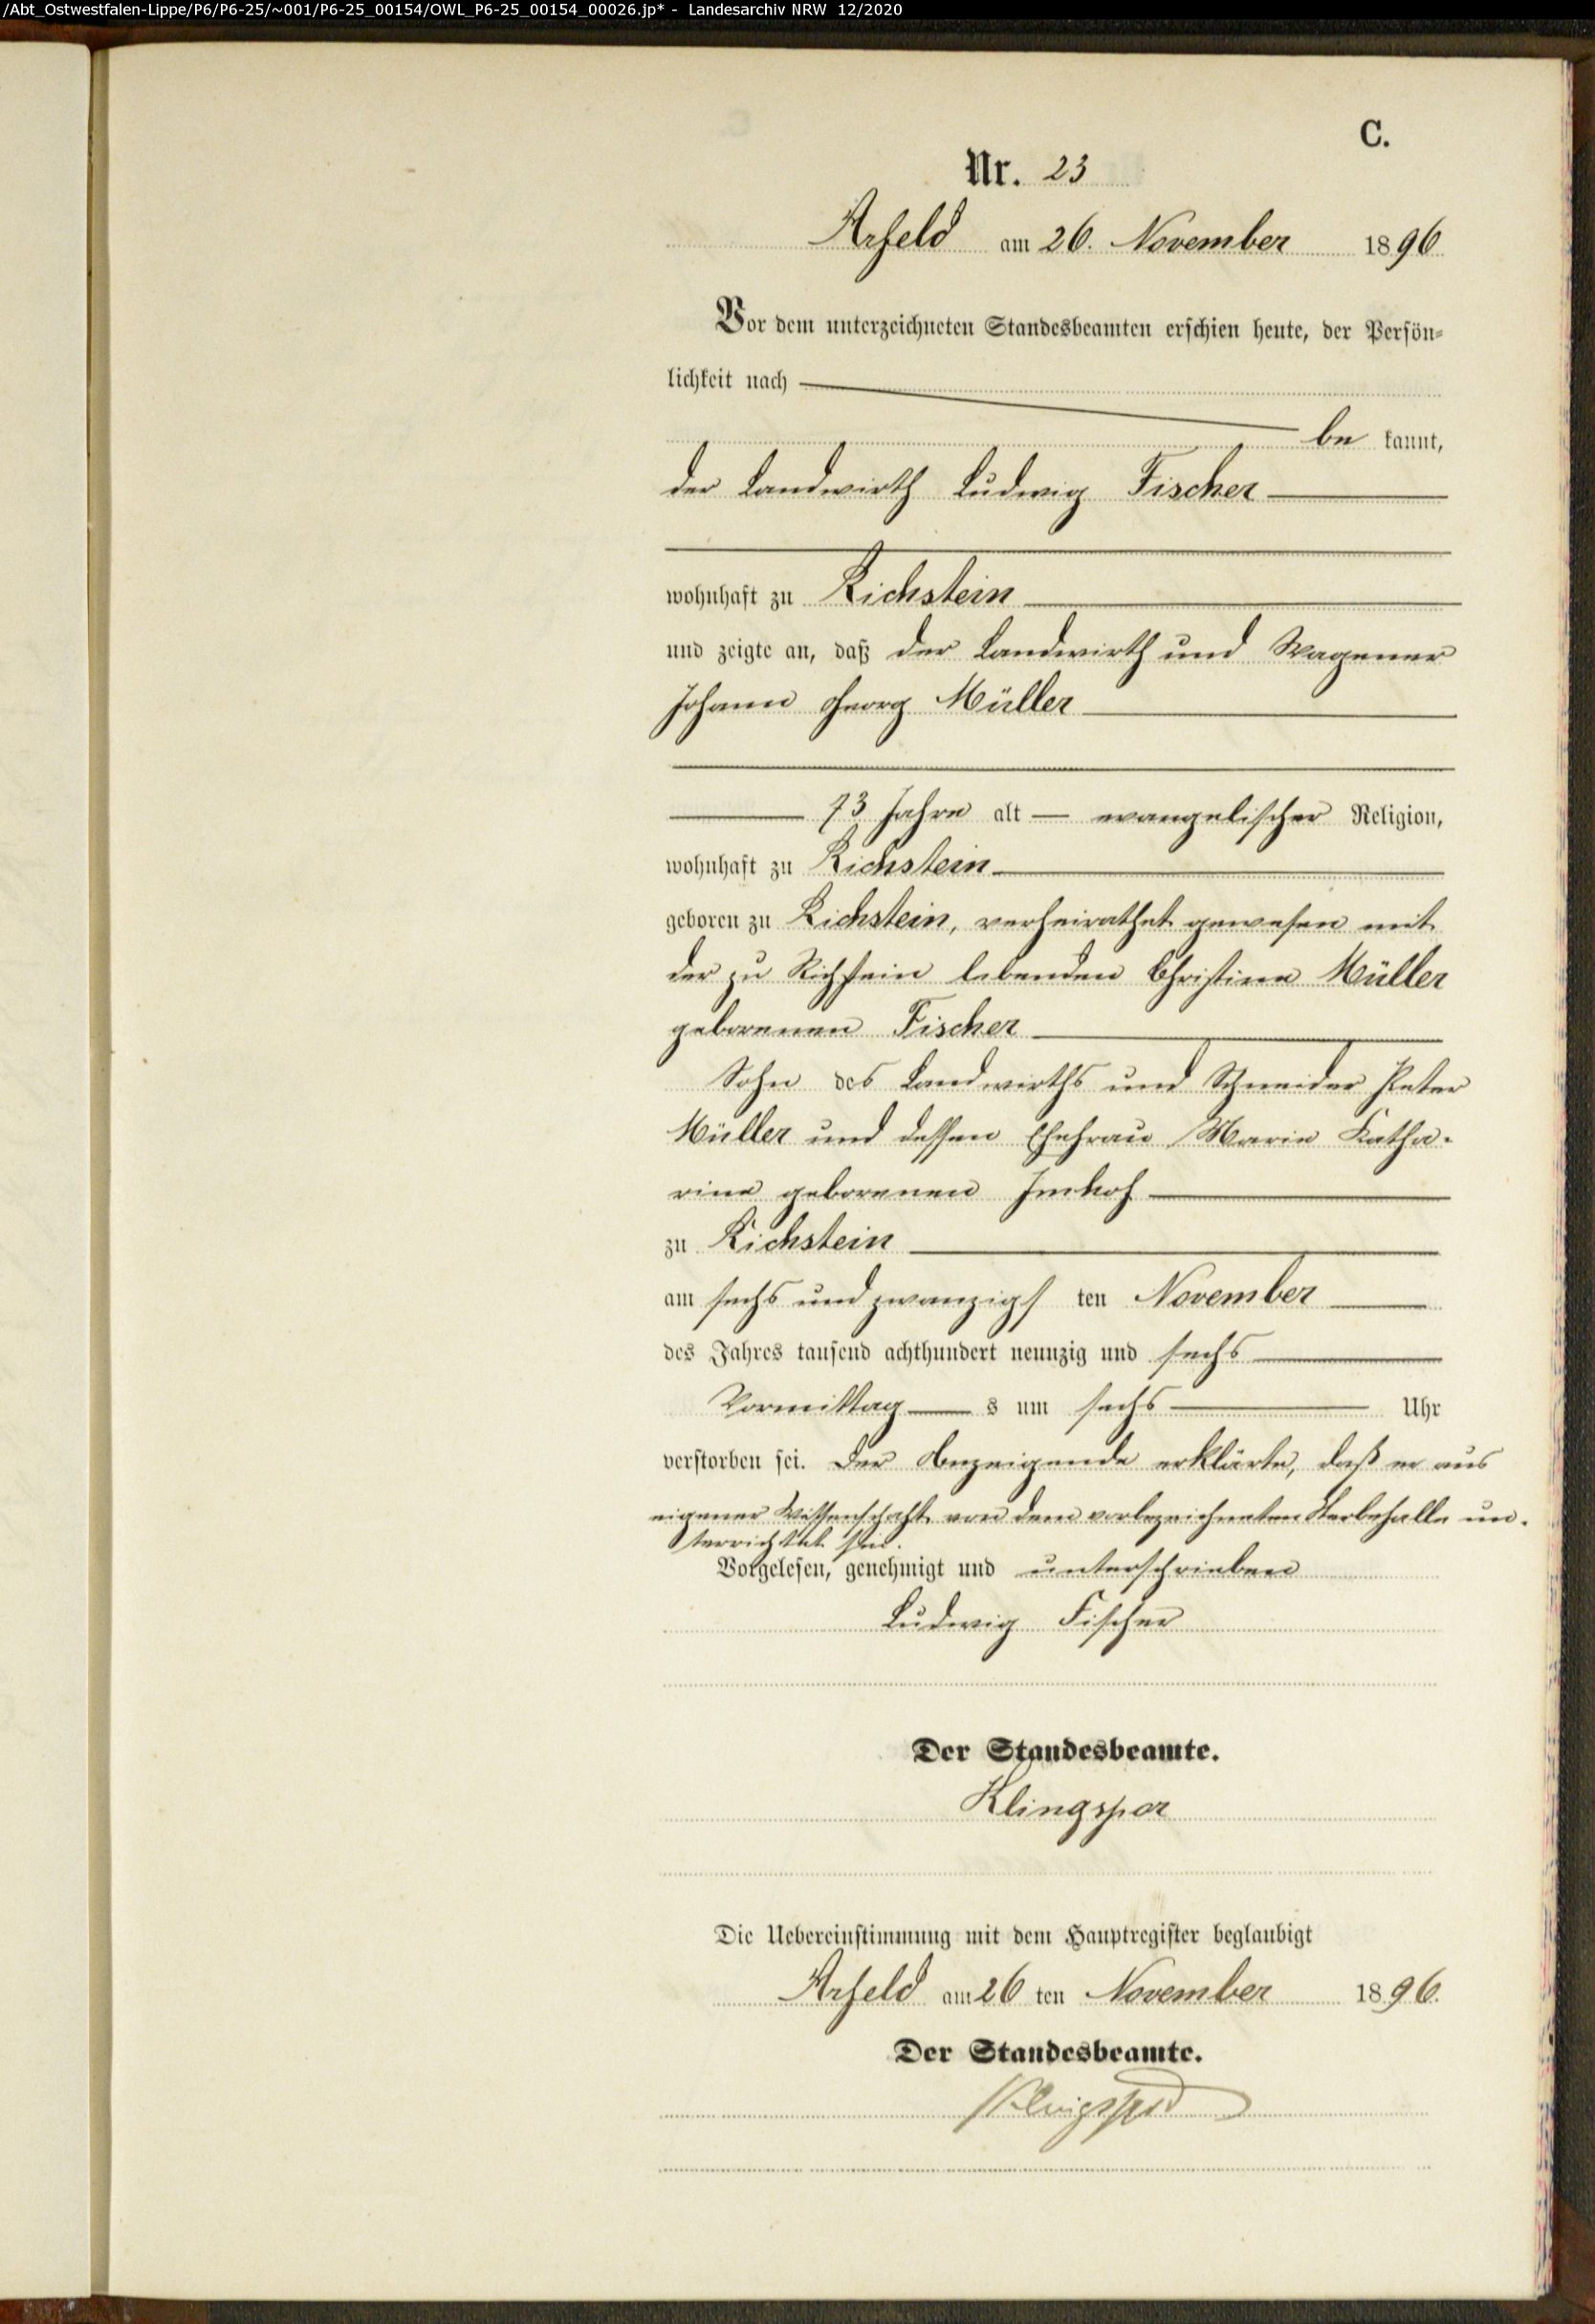 /Abt_Ostwestfalen-Lippe/P6/P6-25/~001/P6-25_00154/OWL_P6-25_00154_00026.jp* - Landesarchiv NRW 12/2020
C.
Nr. 23
Arfeld am 26. November 1896
Vor dem unterzeichneten Standesbeamten erschien heute, der Persön-
lichkeit nach
be kannt,
der Landwirth Ludwig Fischer
wohnhaft zu Richstein
und zeigte an, daß der Landwirth und Wagener
Johann Georg Müller
73 Jahre alt evangelischer Religion,
wohnhaft zu Richstein
geboren zu Richstein, verheirathet gewesen mit
der zu Richstein lebenden Christine Müller
geborenen Fischer
Sohn des Landwirths und Schneider Peter
Müller und dessen Ehefrau Marie Katha-
rine geborenen Imhof
zu Richstein
am sechs und zwanzigs ten November
des Jahres tausend achthundert neunzig und sechs
Vormittag s um sechs Uhr
verstorben sei. Der Anzeigende erklärte, daß er aus
eigener Wissenschaft von dem vorbezeichneten Sterbefalle un-
terrichtet sei.
Vorgelesen, genehmigt und unterschrieben
Ludwig Fischer
Der Standesbeamte.
Klingspor
Die Uebereinstimmung mit dem Hauptregister beglaubigt
Arfeld am 26 ten November 1896.
Der Standesbeamte.
Klingspor